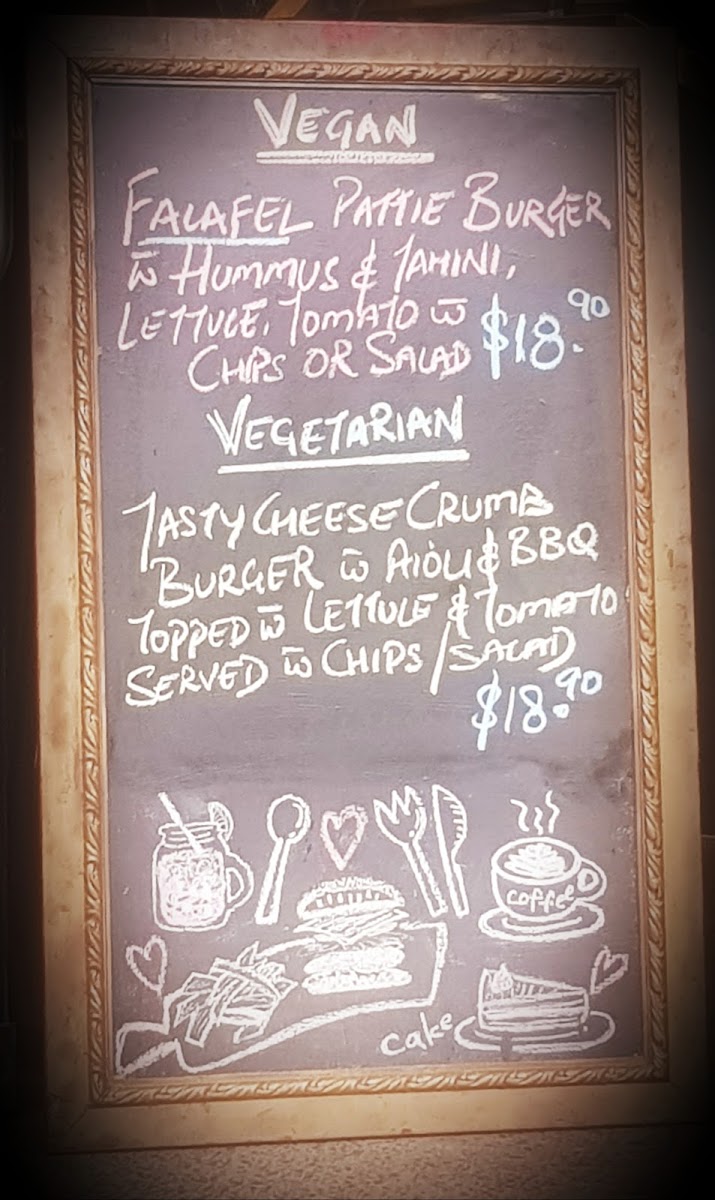 VEGAN
FALAFEL PATTIE BURGER
w̅ HUMMUS & TAHINI,
LETTUCE, TOMATO w̅
CHIPS OR SALAD $18.90
VEGETARIAN
TASTY CHEESE CRUMB
BURGER w̅ AIOLI & BBQ
TOPPED w̅ LETTUCE & TOMATO
SERVED w̅ CHIPS / SALAD
$18.90
coffee
cake